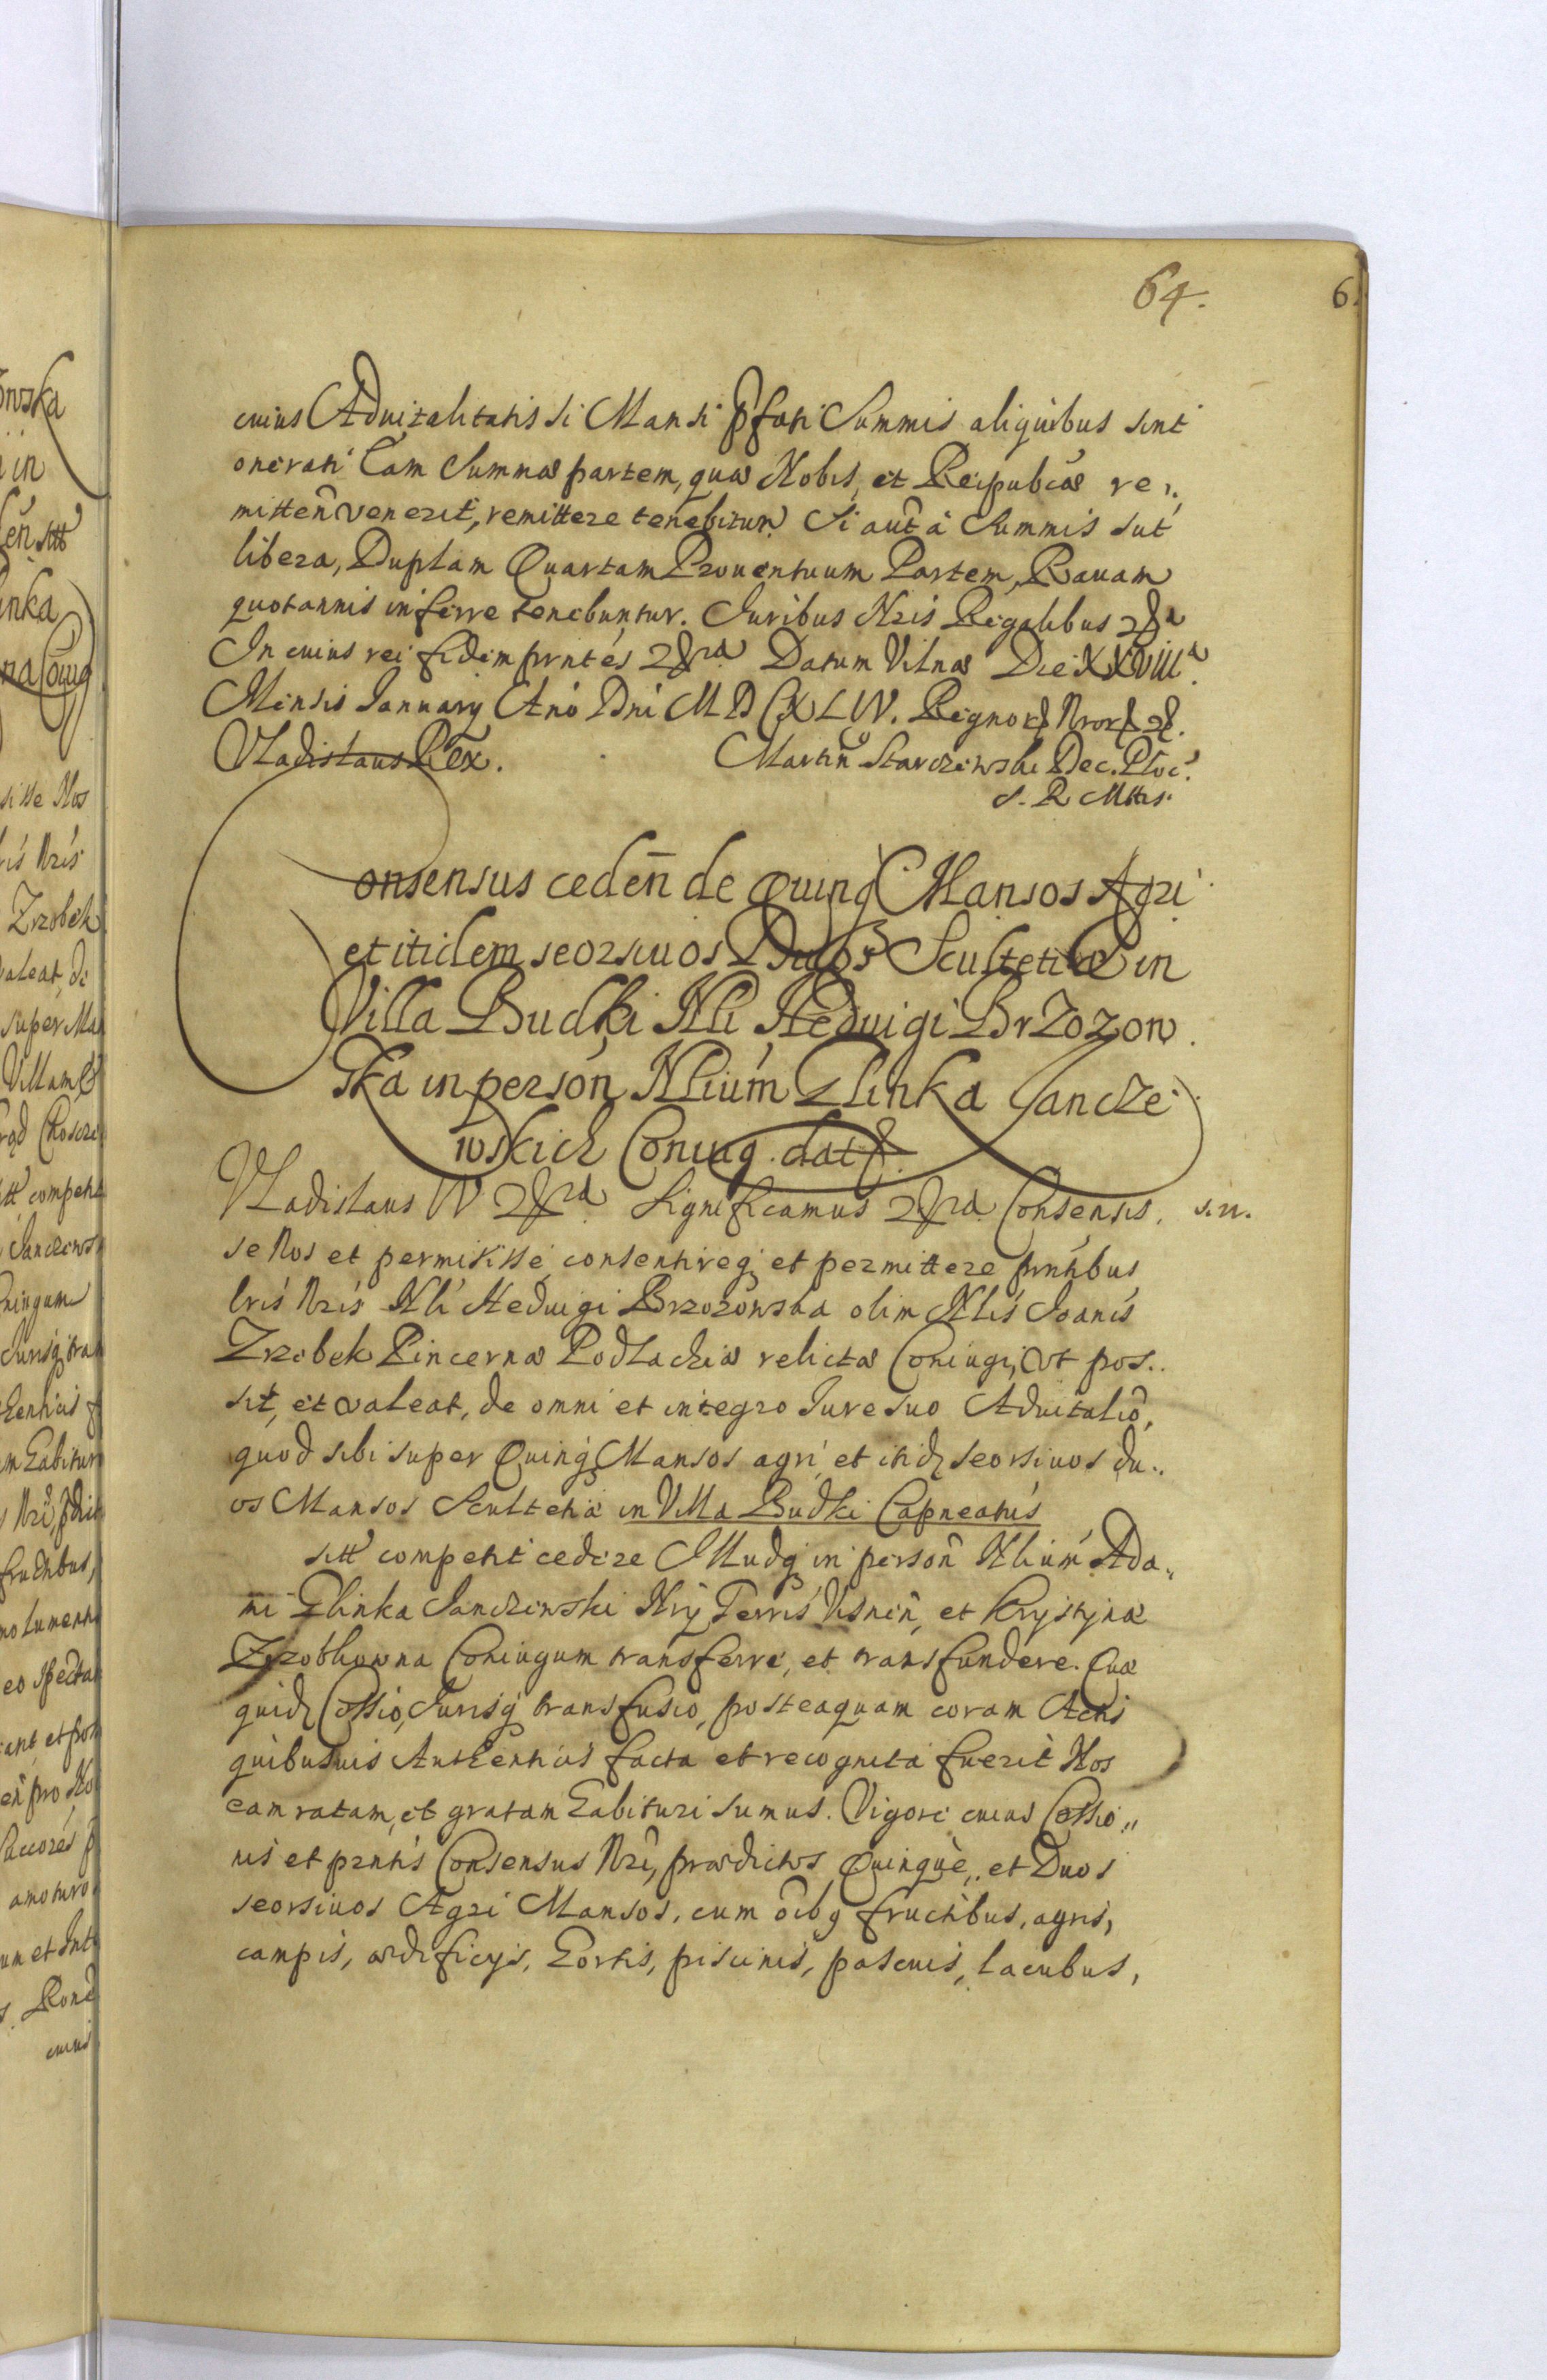 64.
6
cuius Aduitalitatis si Mansi pfati Summis aliquibus sint
onerati Eam Summæ partem, quæ Nobis, et Reipubcæ re
mitten̄ venerit, remittere tenebitur. Si aut̄ à Summis sut
libera, Duplam Quartam Prouentuum Partem, Rauam
quotannis inferre tenebuntur. Juribus Nris Regalibus &ra
In cuius rei fidem prntes &ra Datum Vilnæ Die XXVIIIa
Mensis January Ano Dni MDCXLIV. Regnor Nror &.
Vladislaus Rex.
Martin Starczewski Dec. Ploc.
S. R. Mttis.
Consensus ceden̄ de Quinq Mansos Agri
et itidem seorsiuos Duos Scultetiæ in
Villa Budki Nli Heduigi Brzozow
ska in person̄ Nlium Glinka Jancze
wskich Coniug. dat.
Vladislaus IV &ra Significamus &ra Consensis, s. n.
se Nos et permisisse, consentireq et permittere prntibus
lris Nris Nli Heduigi Brzozowska olim Nlis Joanis
Zrzobek Pincernæ Podlachiæ relictæ Coniugi, Vt pos
sit, et valeat, de omni et integro Jure suo Aduitalio,
quod sibi super Quinq Mansos agri, et itid seorsiuos du
os Mansos Scultetiæ in Villa Budki Capneatus
sitt competit cedere Illudq in person̄ Nlium Ada
mi Glinka Janczewski Nrÿ Terris Visnen̄, et Krystynæ
Zrzobkowna Coniugum transferre, et transfundere. Quæ
quid Cessio, Jurisq transfusio, posteaquam coram Actis
quibusuis Authenticis facta et recognita fuerit Nos
eam ratam, et gratam habituri sumus. Vigore cuius Cessio
nis et prntis Consensus Nri, prædictos Quinque, et Duos
seorsiuos Agri Mansos, cum oibq fructibus, agris,
campis, ædificÿs, hortis, piscinis, pascuis, lacubus,